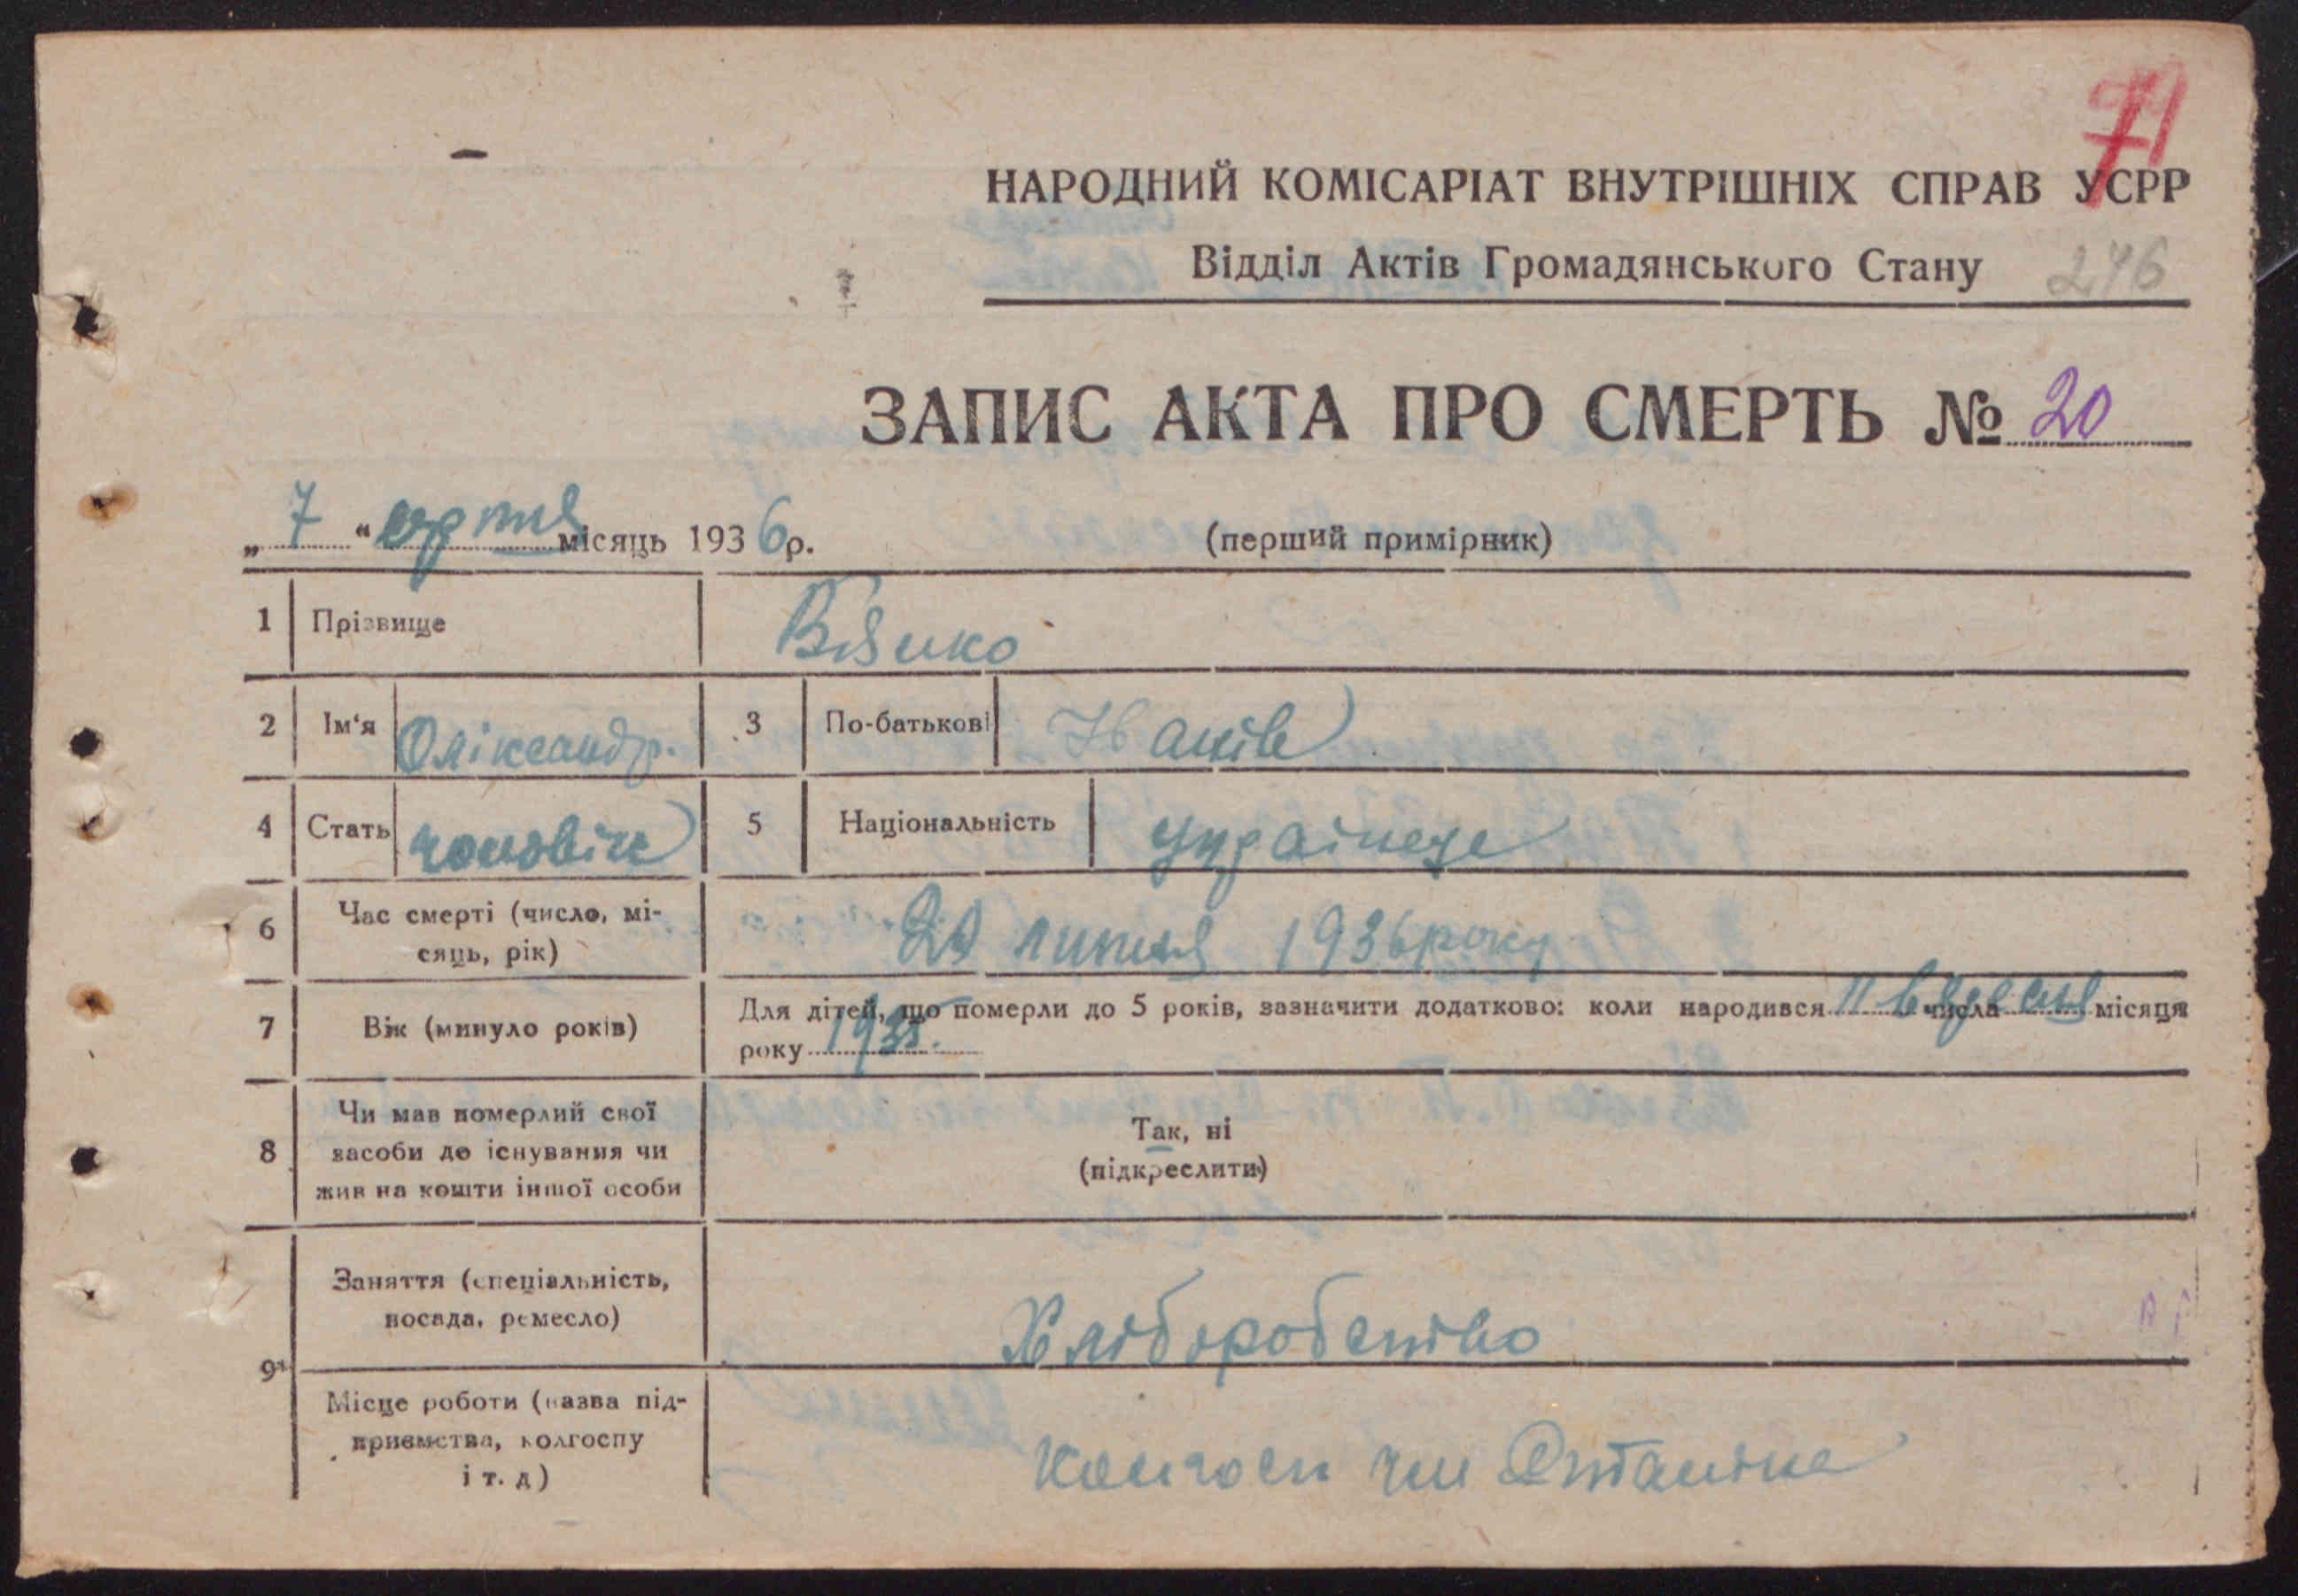 71
НАРОДНИЙ КОМІСАРІАТ ВНУТРІШНІХ СПРАВ УСРР
Відділ Актів Громадянського Стану 246
ЗАПИС АКТА ПРО СМЕРТЬ № 20
„ 7 “ серпня місяць 1936 р. (перший примірник)
1 Прізвище
2 Ім'я Оліксандр. 3 По-батькові Іванів
4 Стать чоловік 5 Національність українець
6 Час смерті (число, мі-
сяць, рік) липня 1936 року
7 Вік (минуло років) Для дітей, що померли до 5 років, зазначити додатково: коли народився 11 числа вересня місяця
року 1935.
8 Чи мав померлий свої
засоби до існування чи
жив на кошти іншої особи
Так, ні
(підкреслити)
9 Заняття (спеціальність,
посада, ремесло) Хліборобство
Місце роботи (назва під-
приємства, колгоспу
і т. д)
Колгосп им Сталіна